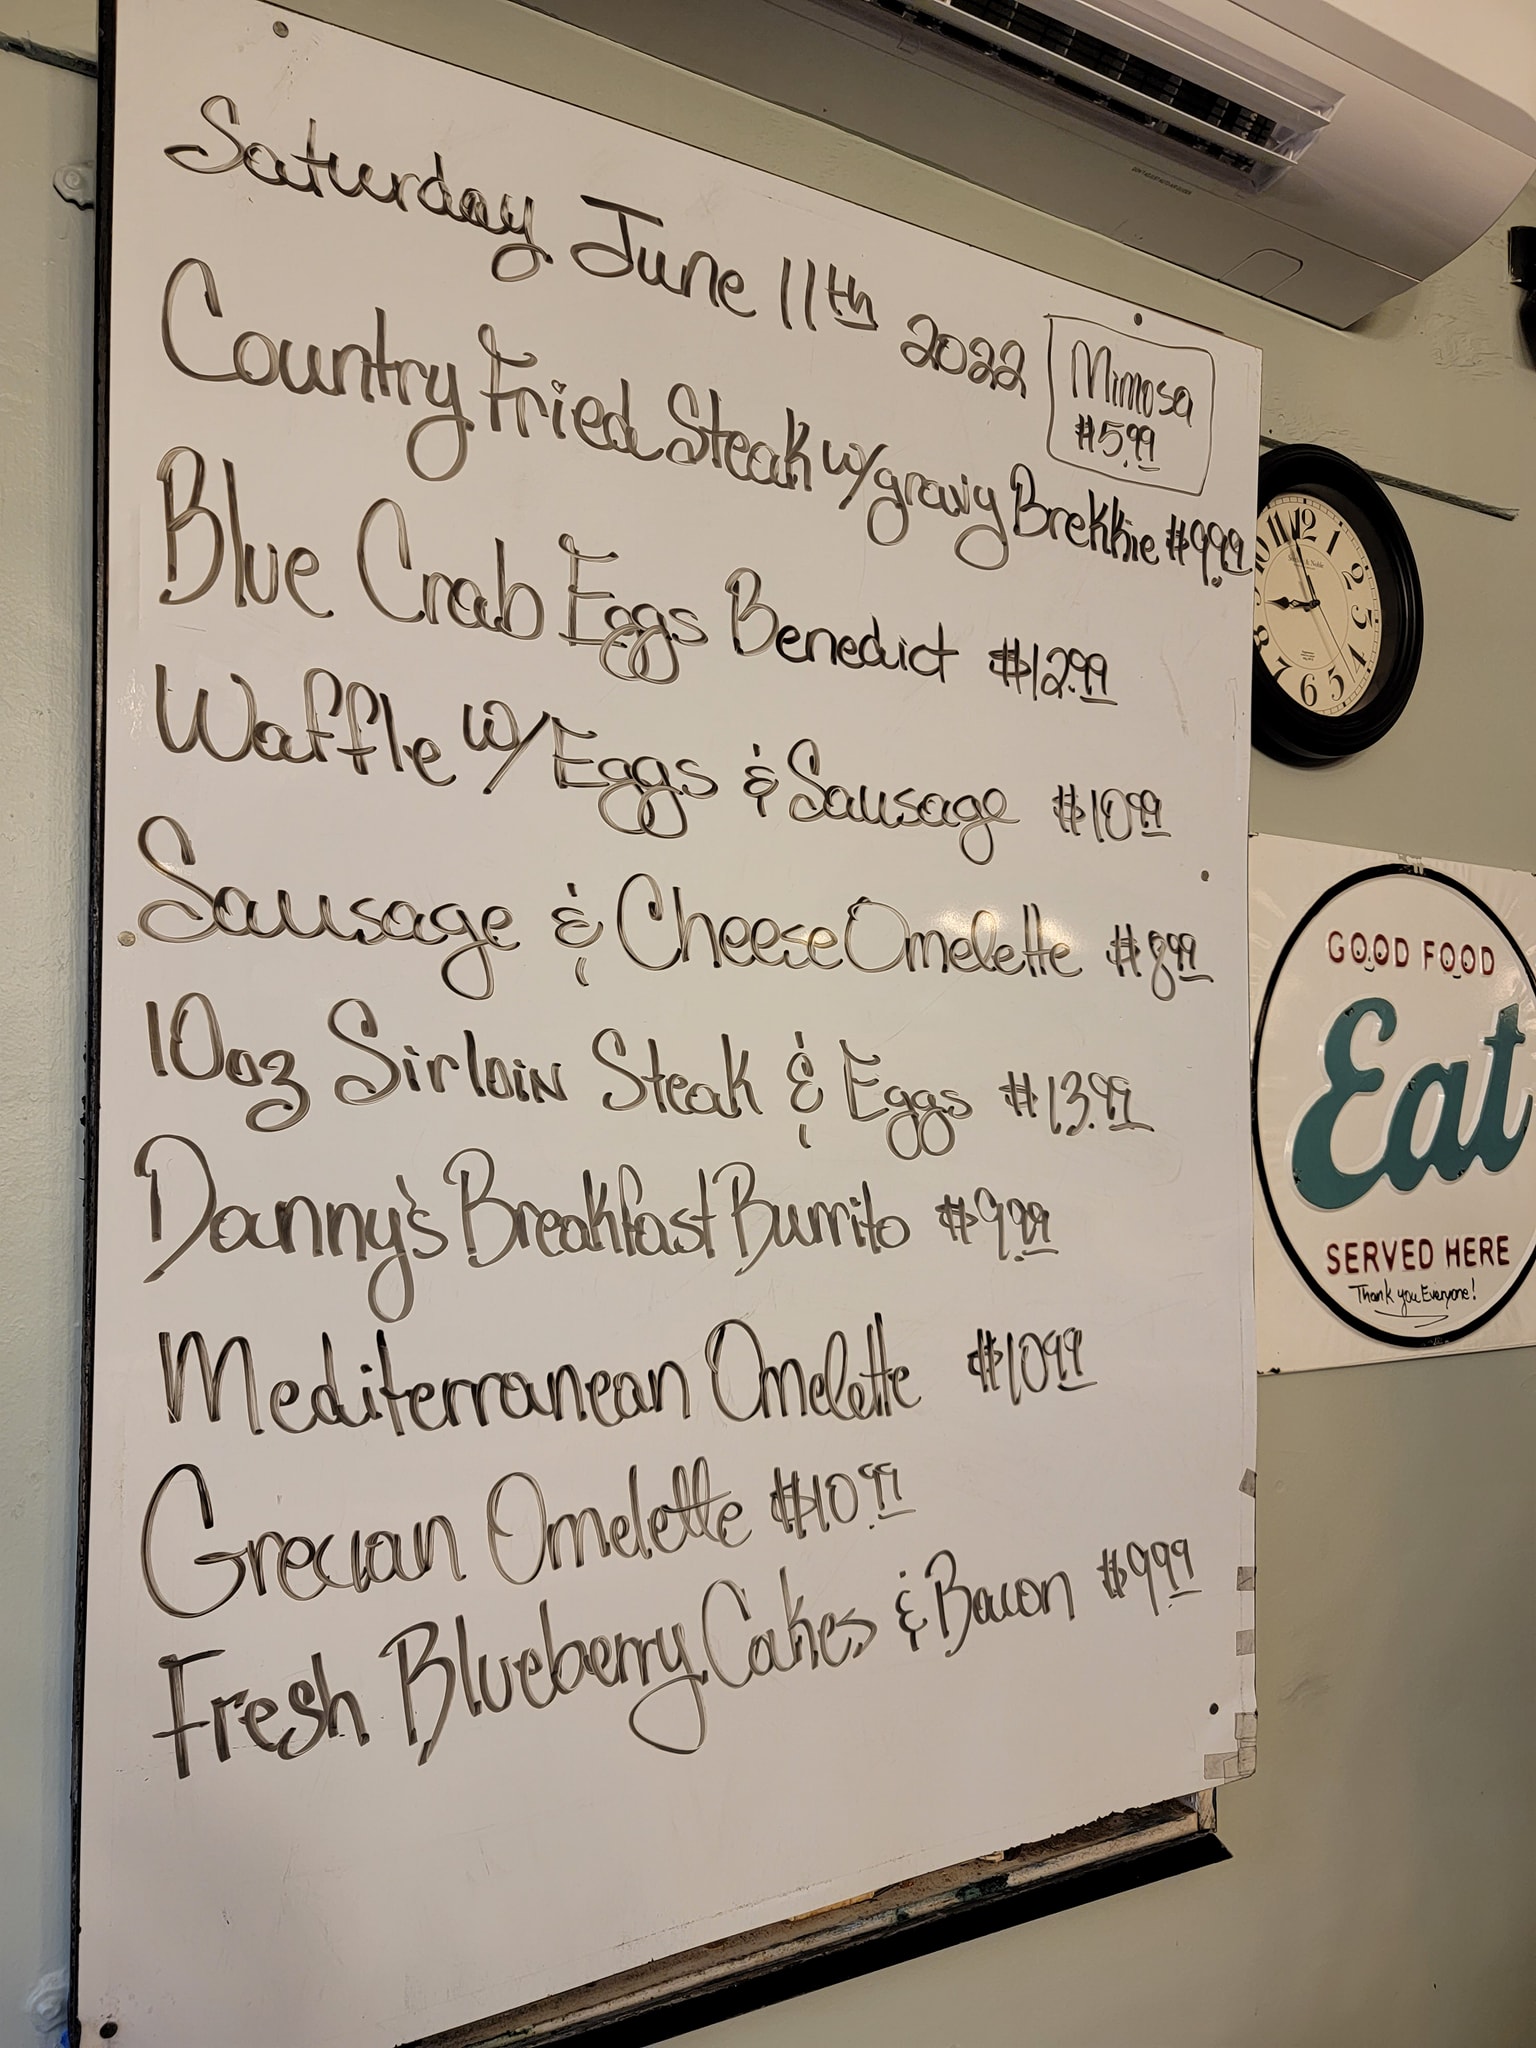 Saturday June 11th 2022
Mimosa
$5.99
Country Fried Steak w/gravy Brekkie $9.99
Blue Crab Eggs Benedict $12.99
Waffle w/ Eggs & Sausage $10.99
Sausage & Cheese Omelette $8.99
10oz Sirloin Steak & Eggs $13.99
Danny's Breakfast Burrito $9.99
Mediterranean Omelette $10.99
Grecian Omelette $10.99
Fresh Blueberry Cakes & Bacon $9.99
11 12 1
10 2
3
8 4
7 6 5
GOOD FOOD
Eat
SERVED HERE
Thank you Everyone!